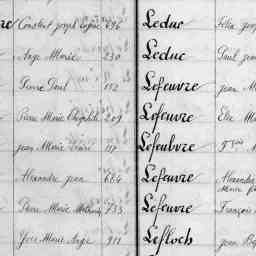 Constant Joseph Eugène 696 Leduc Félix
Ange Marie 230 Leduc Paul
Pierre Paul 112 Lefeuvre Jean
Pierre Marie Théophile 209 Lefeuvre Elie
Jean Marie 117 Lefeubvre
Alexandre Jean 664 Lefeuvre Alexandre
Pierre Marie Mathurin 733 Lefeuvre François
Yves Marie Ange 911 Lefloch Jean